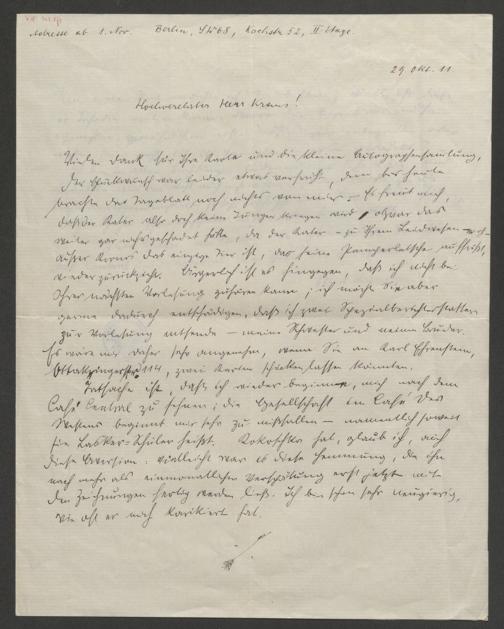 Adresse ab 1. Nov. Berlin, SW 68, Kochstr 52, II. Etage
29. Okt. 11.
Hochverehrter Herr Kraus!
Vielen Dank für Ihre Karte und die kleine Autographensammlung,
der war leider etwas verfrüht, denn bis heute
brachte das Tageblatt noch nichts von mir. – Es freut mich,
daß der Kater also doch keine Jungen kriegen wird, obzwar das
weiter gar nichts geschadet hätte, da der Kater – zu Ihrem Leidwesen –
außer Kornus das einzige Tier ist, das seine
wieder zurückzieht. Bürgerlich ist es hingegen, daß ich nicht bei
Ihrer nächsten Vorlesung zuhören kann; ich möchte Sie aber
gerne dadurch entschädigen, daß ich zwei Spezialberichterstatter
zur Vorlesung entsende – meine Schwester und meinen Bruder.
Es wäre mir daher sehr angenehm, wenn Sie an Karl Ehrenstein,
Ottakringerstr. 114, zwei Karten schicken lassen könnten.
Tatsache ist, daß ich wieder beginne, mich nach dem
Café Central zu sehnen; die Gesellschaft im Café des
Westens beginnt mir sehr zu mißfallen – namentlich soweit
sie Lasker-Schüler heißt. Kokoschka hat, glaub ich, auch
diese Aversion: vielleicht war es diese Hemmung, die ihn
nach mehr als einmonatlicher Verspätung erst jetzt mit
den Zeichnungen fertig werden ließ. Ich bin schon sehr neugierig,
wie oft er mich karikiert hat.